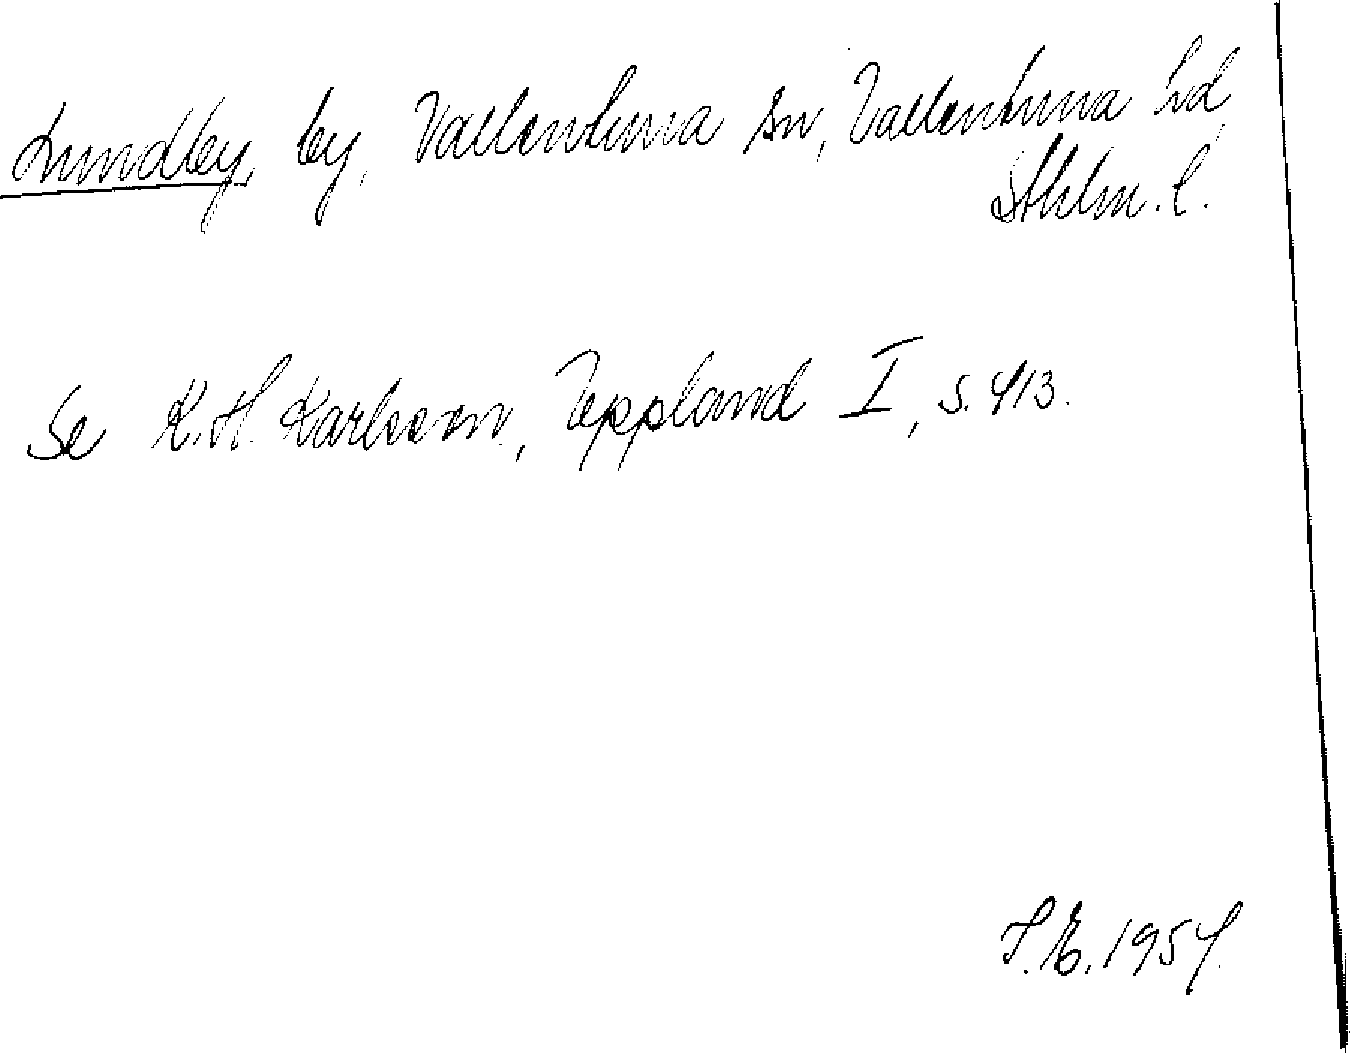 Lundby, by, Vallentuna sn, Vallentuna hd,
Sthlm. l.
Se K. H. Karlsson, Uppland I, s. 413.
S. E. 1954.